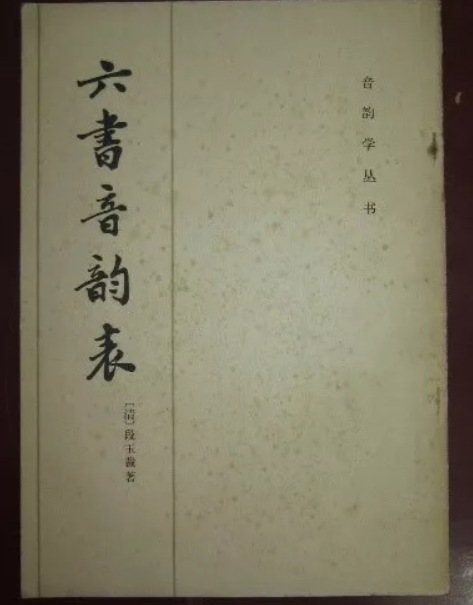 音韵学丛书
六书音韵表
〔清〕段玉裁著